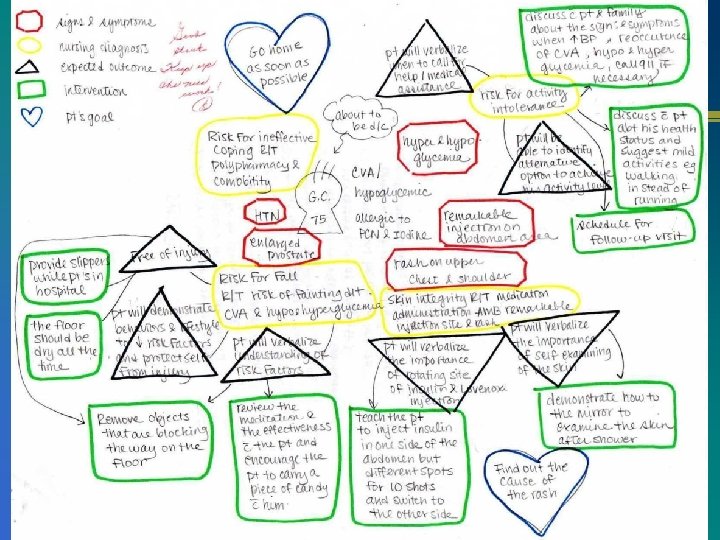 signs & symptoms
nursing diagnosis
expected outcome
intervention
pt's goal
Go home
as soon as
possible
pt will verbalize
when to call for
help / medical
assistance
discuss c̄ pt & family
about the signs & symptoms
when ↑BP, reoccurence
of CVA, hypo & hyper
glycemia, call 911 if
necessary
risk for activity
intolerance
discuss c̄ pt
abt his health
status and
suggest mild
activities eg
walking
instead of
running
pt will be
able to identify
alternative
option to achieve
his activity level
schedule for
follow-up visit
about to
be d/c
Risk for ineffective
coping R/T
polypharmacy &
comobility
hyper & hypo
glycemia
G.C.
75
CVA/
hypoglycemic
allergic to
PCN & Iodine
HTN
enlarged
prostate
remarkable
injection on
abdomen area
rash on upper
chest & shoulder
provide slippers
while pt's in
hospital
Free of injury
Risk for Fall
R/T risk of fainting d/t
CVA & hypo & hyperglycemia
skin integrity R/T medication
administration AMB remarkable
injection site & rash
the floor
should be
dry all the
time
pt will demonstrate
behaviors & lifestyle
to ↓ risk factors
and protect self
from injury
pt will verbalize
understanding of
risk factors
pt will verbalize
the importance
of rotating site
of insulin & Lovenox
injection
pt will verbalize
the importance
of self examing
of the skin
Remove objects
that are blocking
the way on the
floor
review the
medication &
the effectiveness
c̄ the pt and
encourage the
pt to carry a
piece of candy
c̄ him.
teach the pt
to inject insulin
in one side of the
abdomen but
different spots
for 10 shots
and switch to
the other side
demonstrate how to
the mirror to
examine the skin
after shower
Find out the
cause of
the rash